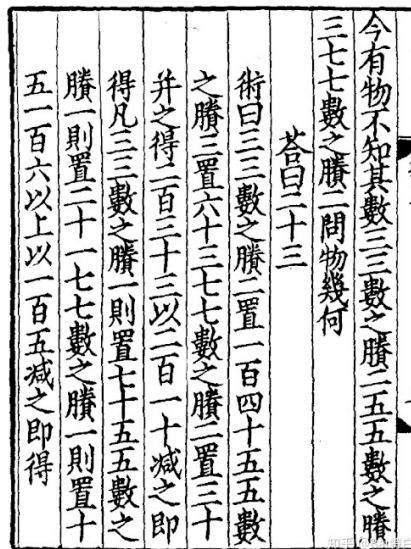 今有物不知其數三三數之賸二五五數之賸
三七七數之賸二問物幾何
荅曰二十三
術曰三三數之賸二置一百四十五五數
之賸三置六十三七七數之賸二置三十
并之得二百三十三以二百一十減之即
得凡三三數之賸一則置七十五五數之
賸一則置二十一七七數之賸一則置十
五一百六以上以一百五减之即得